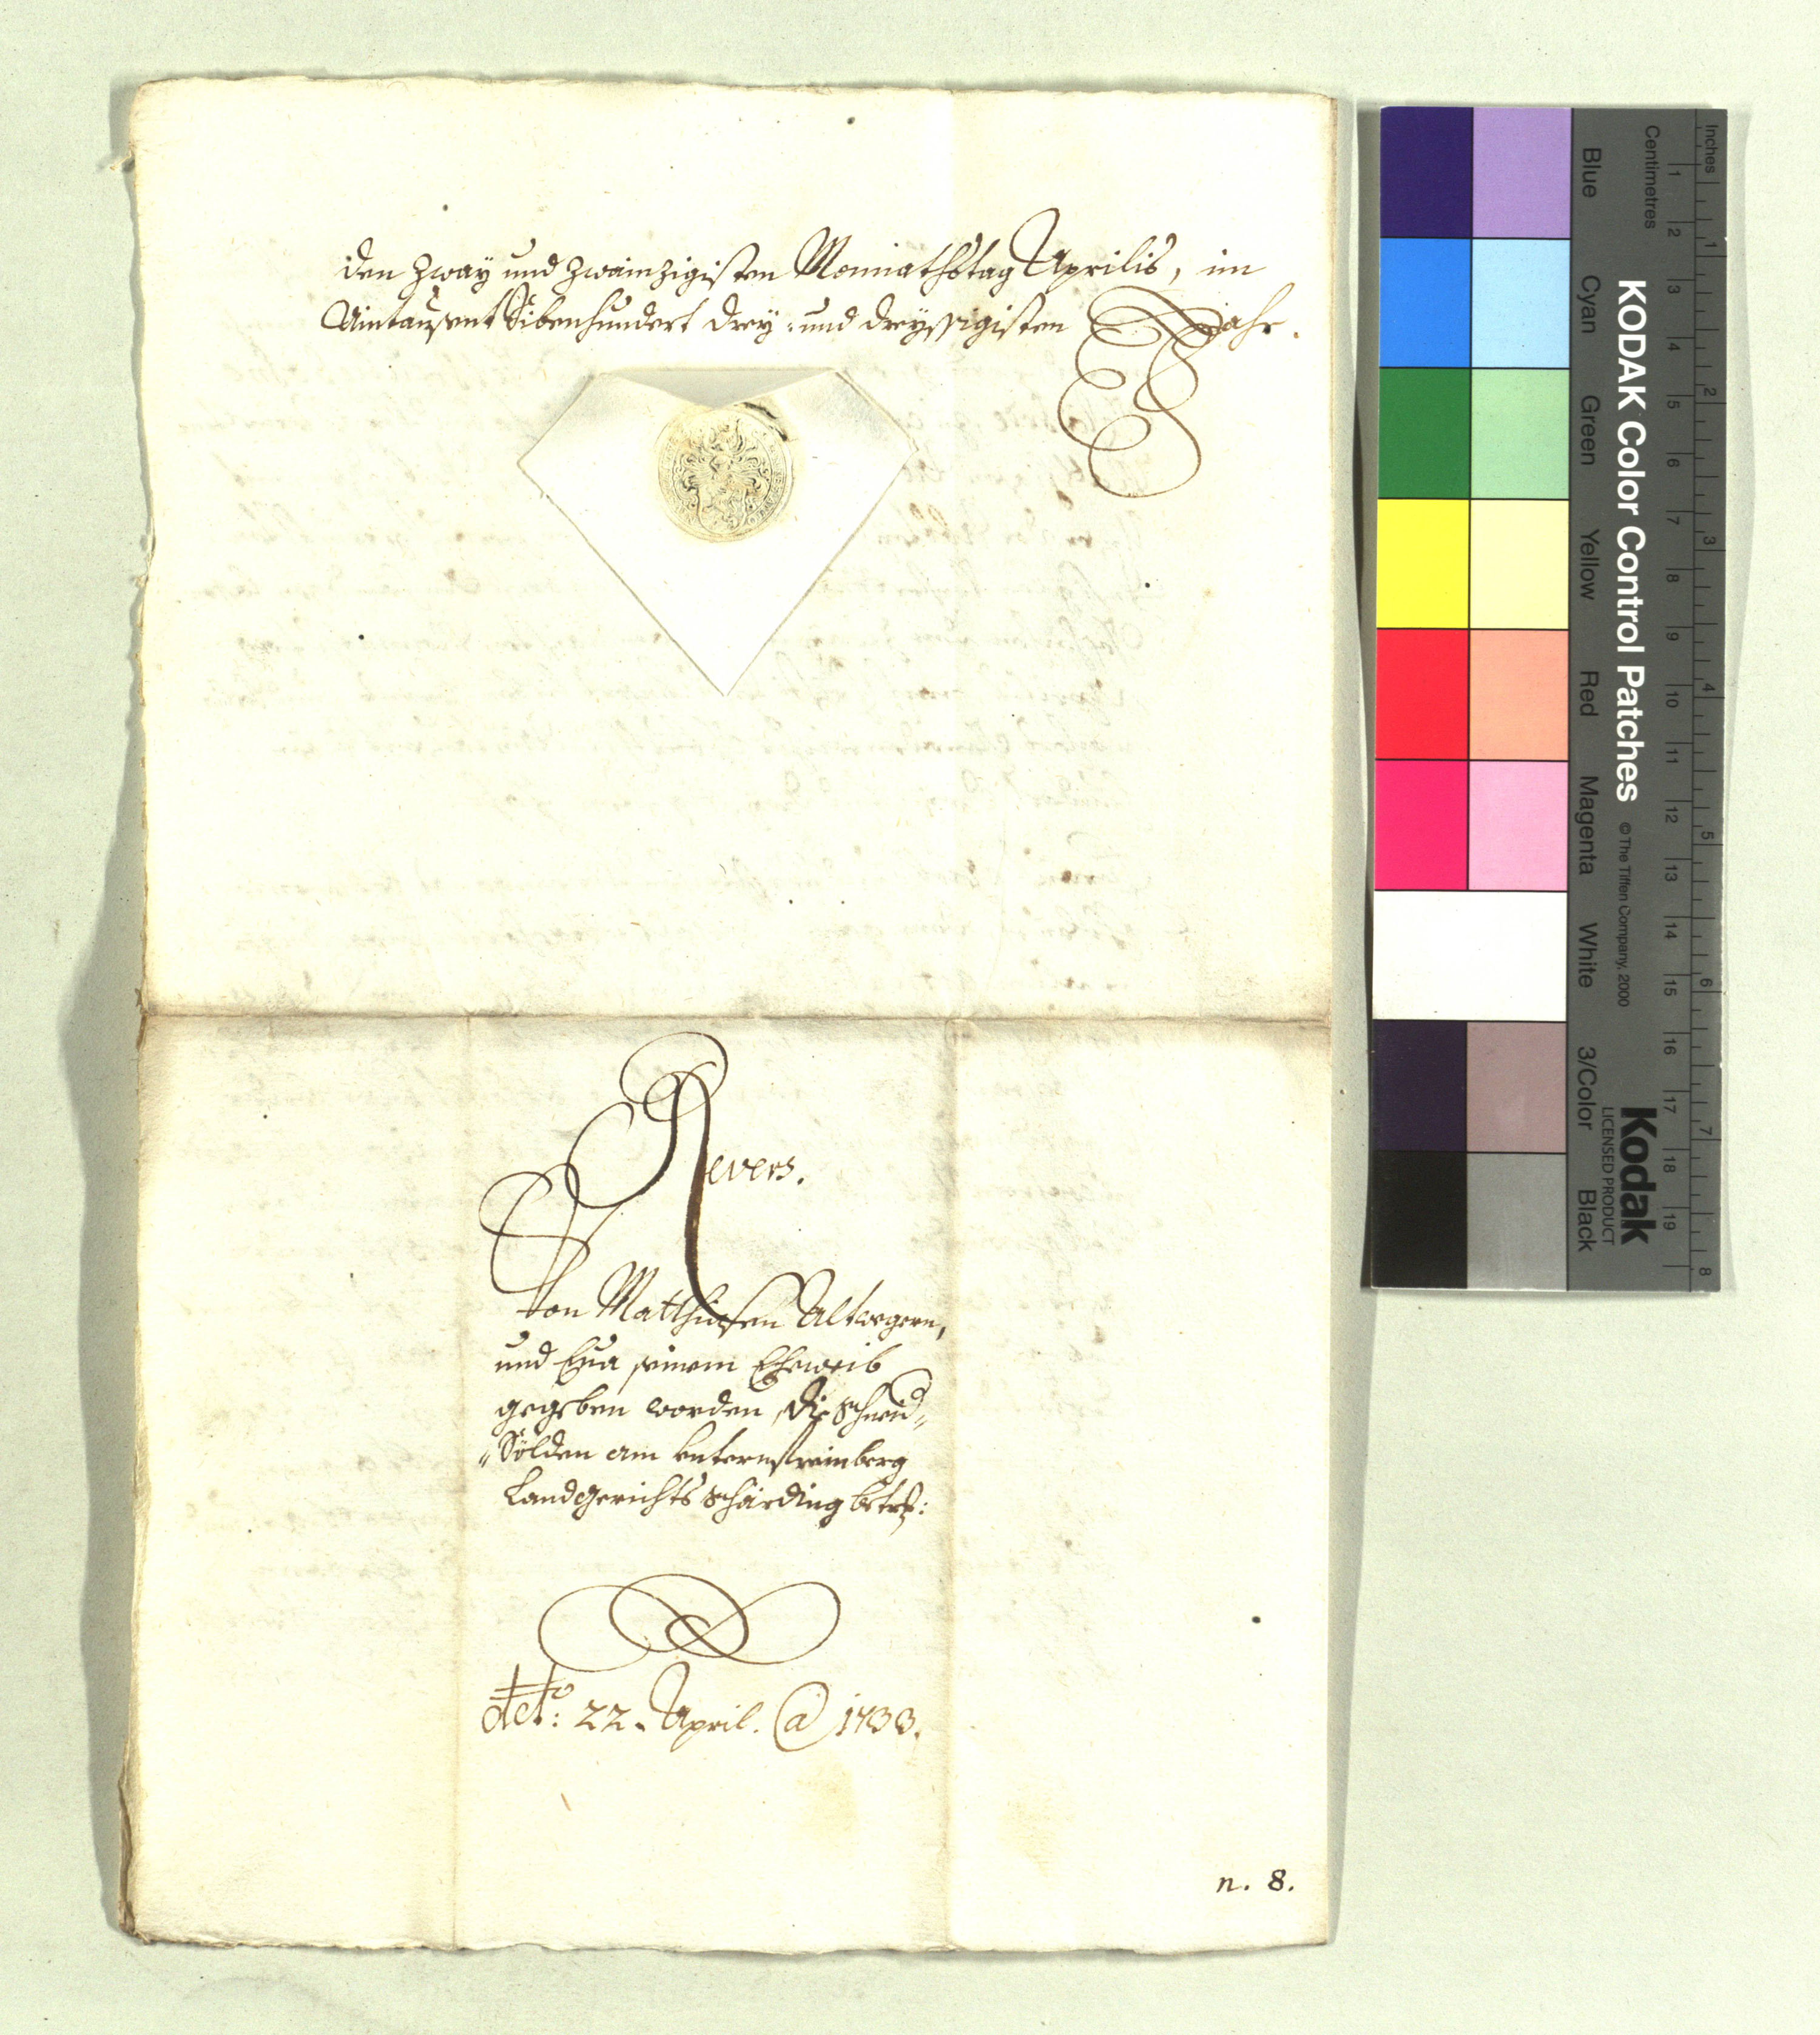 den Zway und zwainzigisten Monnathstag Aprilis, im
Aintausent Sibenhundert drey- und dreyssigisten Jahr.
Revers.
Von Matthiasen Altwegern,
und Eva seinem Eheweib
gegeben worden, die Schneid„
„Sölden am Unternsteinberg
Landgerichts Schärding betrf:
dctō: 22. April. @ 1733.
n. 8.
KODAK Color Control Patches
© The Tiffen Company, 2000
Kodak
LICENSED PRODUCT
Blue Cyan Green Yellow Red Magenta White 3/Color Black
Centimetres 1 2 3 4 5 6 7 8 9 10 11 12 13 14 15 16 17 18 19
Inches 1 2 3 4 5 6 7 8